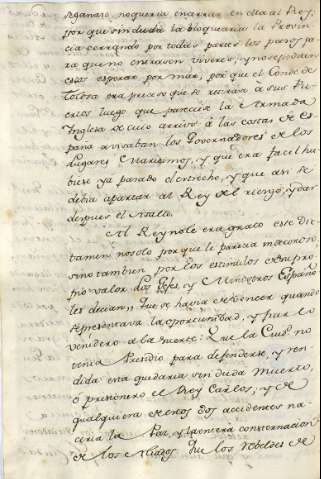 se ganaso, no queria encerrar en ella al Rey,
por que sin duda la bloquearia la Provin
cia cerrando por todas partes los pasos pa
ra que no entrasen viveres, y no se podian
estos esperar por mar, por que el Conde de
Tolosa era preciso que se retirase a sus Pu
ertos luego que pareciese la Armada
Inglesa de cuio arrivo á las costas de es
paña avisaban los Governadores de los
Lugares Maritimos, y que era facil hu
biese ya pasado el estrecho, y que asi se
debia apartar al Rey del riesgo, y dar
despues el Asalto.
Al Rey no le era grato ese Dic
tamen no solo por que le parecia indecoroso,
sino tambien por los estimulos de su pro
prio valor los Gefes y Ministros Españo
les decian, Que se havia de vencer quando
representava la oportunidad, y fiar lo
venidero a la suerte: Que la Ciud. no
tenia Presidio para defenderse, y ren
dida esta quedaria sin duda muerto,
o prisionero el Rey Carlos, y de
qualquiera de estos dos accidentes na
ceria la Paz, y la entera consternacion
de los Aliados Que los rebeldes de